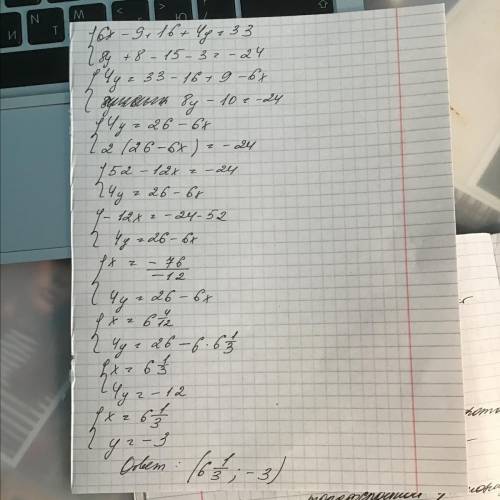 6x - 9 + 16 + 4y = 33
8y + 8 - 15 - 3 = -24
4y = 33 - 16 + 9 - 6x
8y - 10 = -24
4y = 26 - 6x
2 (26 - 6x) = -24
52 - 12x = -24
4y = 26 - 6x
-12x = -24 - 52
4y = 26 - 6x
x = -76/-12
4y = 26 - 6x
x = 6 4/12
4y = 26 - 6 · 6 1/3
x = 6 1/3
4y = -12
x = 6 1/3
y = -3
Ответ: (6 1/3; -3)